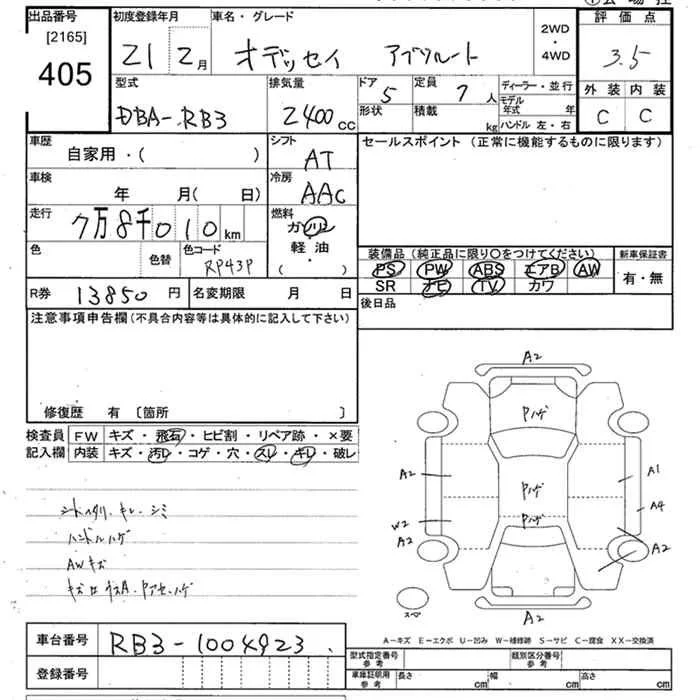 出品番号
[2165]
405
初度登録年月
21 2月
車名・グレード
オデッセイ アブソルート
2WD
・
4WD
評価点
3.5
外装 内装
C C
型式
DBA-RB3
排気量
2400CC
ドア 5
形状
定員 7人
積載 kg
ディーラー・並行
モデル年式 年
ハンドル 左・右
車歴
自家用・( )
シフト
AT
セールスポイント (正常に機能するものに限ります)
車検
年 月( 日)
冷房
AAC
走行
7万8千010km
燃料
ガソリン
軽・油
( )
色
色替
色コード
RP43P
装備品 (純正品に限り〇をつけてください)
PS PW ABS エアB AW
SR ナビ TV カワ
新車保証書
有・無
R券 13850円
名変期限 月 日
後日品
注意事項申告欄(不具合内容等は具体的に記入して下さい)
修復歴 有 〔箇所 〕
検査員
記入欄
FW キズ・飛石・ヒビ割・リペア跡・×要
内装 キズ・汚レ・コゲ・穴・スレ・キレ・破レ
シートヘタリ、キレ、シミ
ハンドルハゲ
AWキズ
A2
Pハゲ
A2
A1
Pハゲ
A4
W2
A2
Pハゲ
A2
スペア
A2
A-キズ E-エクボ U-凹み W-補修跡 S-サビ C-腐食 XX-交換済
車台番号 RB3-1004923
登録番号
型式指定番号
参考
類別区分番号
参考
車庫証明用
参考
長さ cm
幅 cm
高さ cm